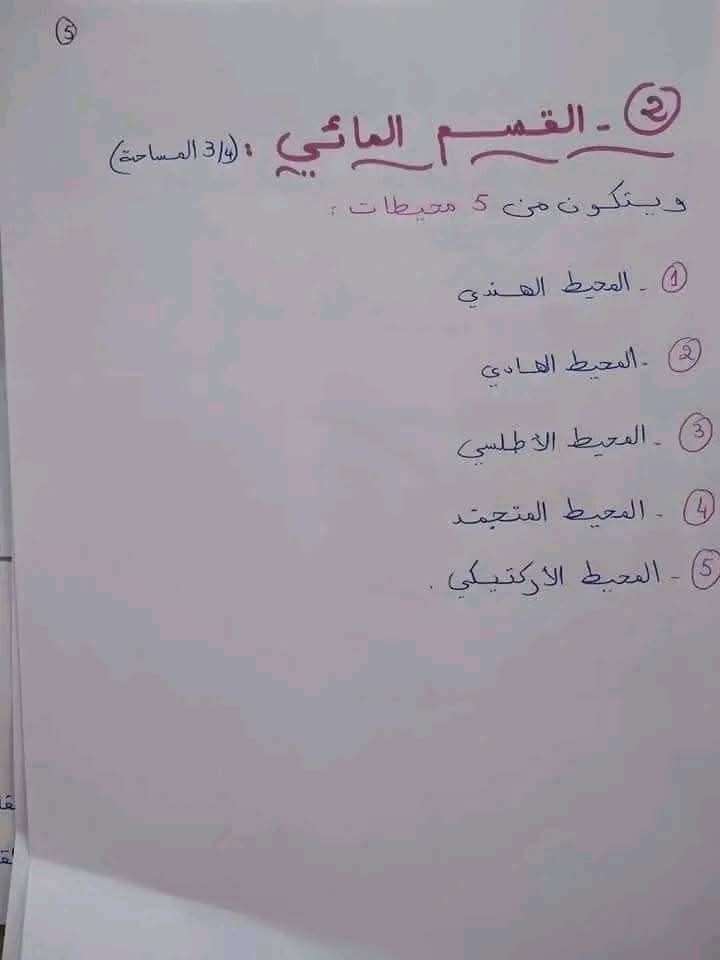 5
2 - القسم المائي : (3/4 المساحة)
ويتكون من 5 محيطات :
1 - المحيط الهندي
2 - المحيط الهادي
3 - المحيط الأطلسي
4 - المحيط المتجمد
5 - المحيط الأركتيكي .